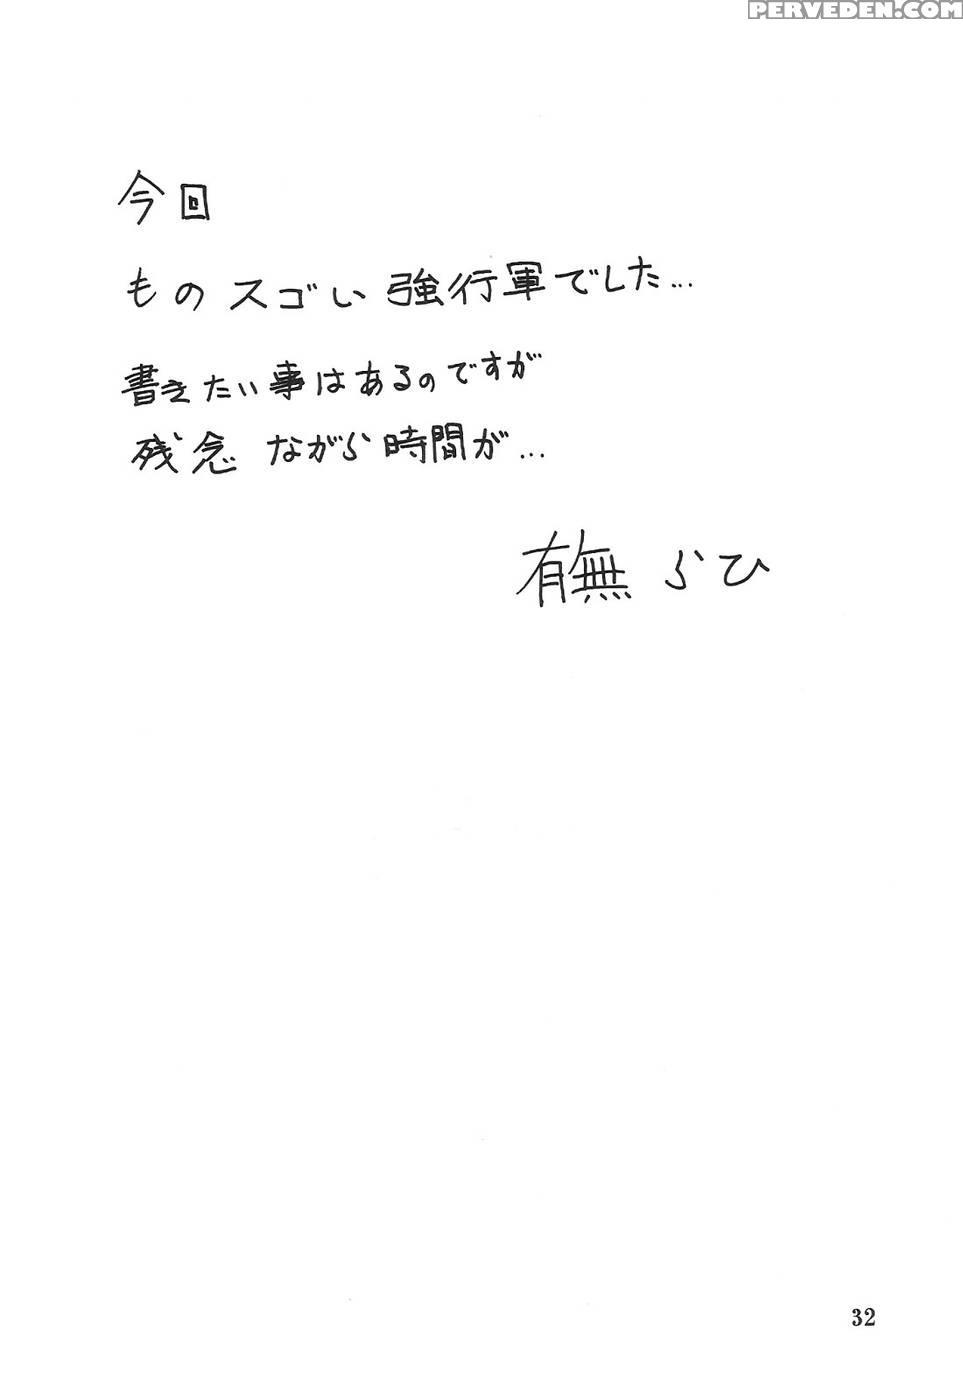 PERVEDEN.COM
今回
ものスゴい強行軍でした...
書きたい事はあるのですが
残念ながら時間が...
有無らひ
32